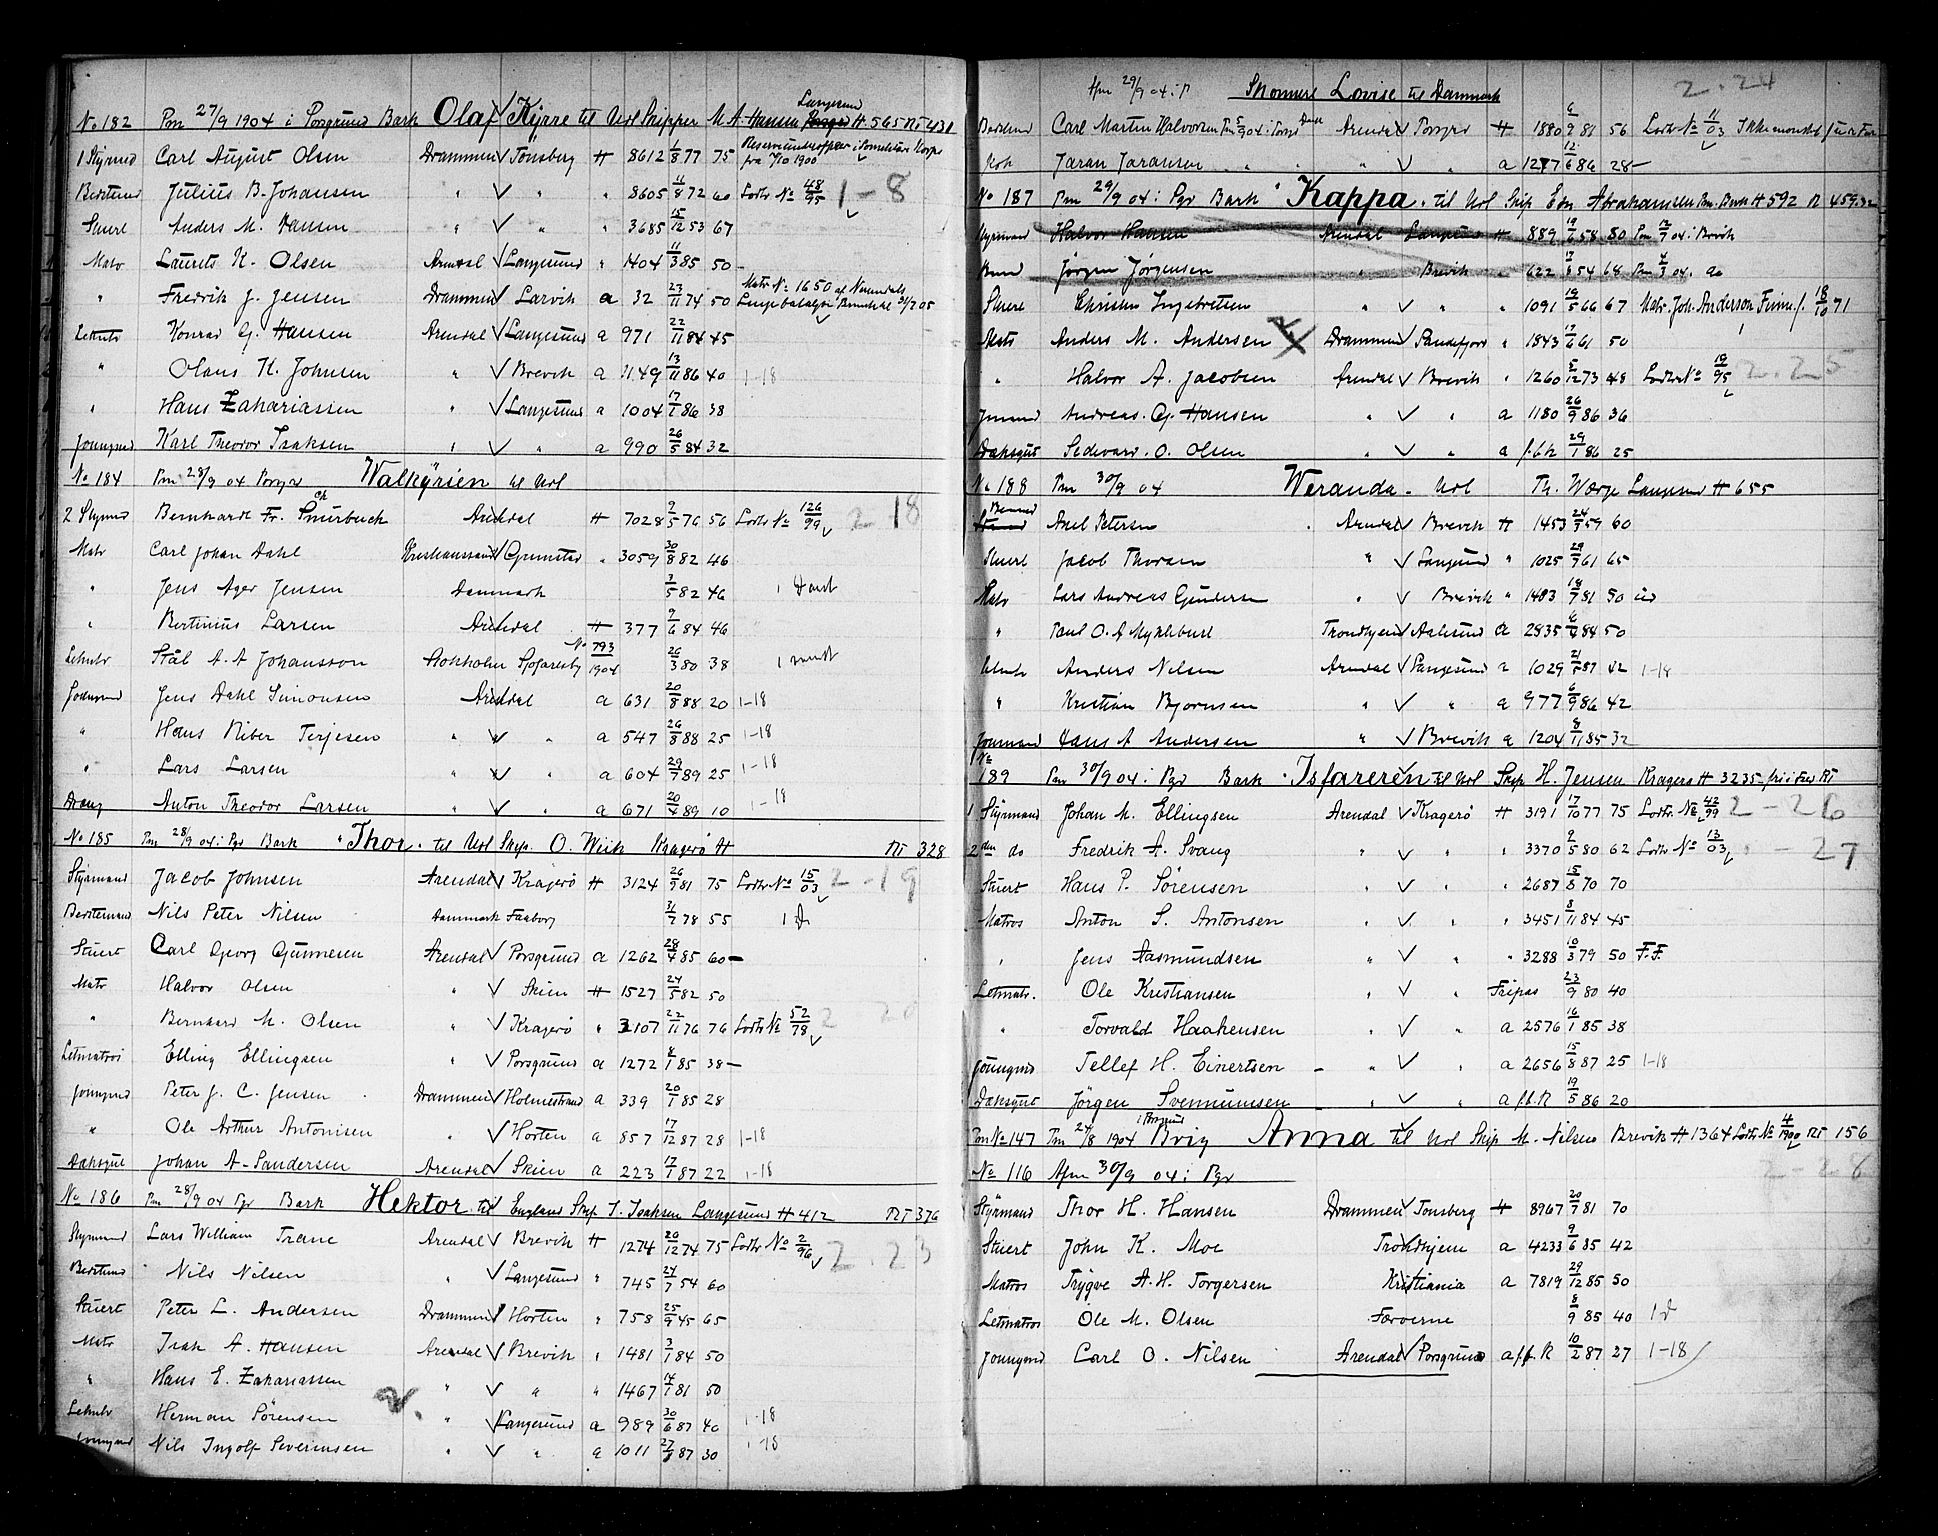 No 182 Pm 27/9 1904 i Porsgrund Bark Olaf Kyrre til Uol Skipper M A Hansen Langesund H 565 RT 431
1 Styrmd Carl August Olsen Drammen Tønsberg H 8612 1/8 77 75 fra 1/10 1900
Julius B. Johansen " " " 8605 11/8 72 60 Lods No 48/95 1-8
Stuert Anders M. Hansen " " " 3685 15/12 53 67
Matr Laurits K. Olsen Arendal Langesund " 1404 11/3 85 50
" Fredrik J. Jensen Drammen Larvik a 32 23/11 74 50 Matr No 1650
Letmtr Konrad G. Hansen Arendal Langesund a 971 22/11 84 45
" Olaus K. Johnsen " Brevik a 1149 13/11 86 40 1-18
" Hans Zakariassen " Langesund a 1004 17/1 86 38
Joungmd Karl Theodor Isaksen " " a 990 26/5 84 32
No 184 Pm 28/9 04 Porsgr Walkyrien til Uol
2 Styrmd Bernhardt Fr. Arendal H 7028 9/5 76 56 Lods No 126/99 2 18
Matr Carl Johan Dahl Kristianssand Grimstad " 3059 30/8 82 46
" Jens Ager Jensen Danmark 3/5 82 46 1 Dansk
" Bertinius Larsen Arendal H 377 9/6 84 46
Letmtr Stål A. A Johansson Stokholm No 793/1904 26/3 80 38 1
Joungmd Jens Dahl Simonsen Arendal a 631 20/8 88 20 1-18
" Hans Riber Terjesen " " a 547 26/8 88 25 1-18
" Lars Larsen " " a 604 29/7 89 25 1-18
Anton Theodor Larsen " " a 671 20/4 89 10 1-18
No 185 Pm 28/9 04 i Pgr Bark "Thor" til Uol Skip. O. Wiik Kragerø H RT 328
Styrmand Jacob Johnsen Arendal Kragerø H 3124 26/9 81 75 Lods No 15/03 2-19
Nils Peter Nilsen Danmark Faaborg 31/7 78 55 1 D
Stuert Carl Georg Gunnesen Arendal Porsgrund a 1262 28/4 85 60
Matr Halvor Olsen " Skien H 1527 24/5 82 50
" Bernhard M. Olsen " Kragerø " 2107 22/11 76 76 Lods No 52/78 2 20
Letmatros Elling Ellingsen " Porsgrund a 1272 8/1 85 38
Joungmd Peter J. C. Jensen Drammen Holmestrand a 339 20/1 85 28
" Ole Arthur Antonisen " Horten a 857 17/12 87 28 1-18
Dæksgut Johan A. Sandersen Arendal Skien a 223 17/1 87 22 1-18
No 186 Pm 28/9 04 Pgr Bark Hektor til England Skip T. Isaksen Langesund H 412 RT 376
Styrmand Lars William Trane Arendal Brevik H 1274 26/12 74 75 Lods No 2/96 2.23
Nils Nilsen " Langesund " 745 24/7 54 60
Stuert Peter L. Andersen Drammen Horten " 758 25/9 45 65
Matr Isak A. Hansen Arendal Brevik " 1481 3/1 84 50
" Hans E. Zakariassen " " " 1467 14/1 81 50
Letmtr Herman Sørensen " Langesund a 989 30/6 87 40 1-18
Joungmd Nils Ingolf Severinsen " " a 1011 27/8 87 30 1-18
Apm 29/9 04 i P Skonnert Lovise til Danmark 2.24
Carl Martin Halvorsen Pm 5/9 04 i Porsgr Arendal Porsgr H 1880 6/9 81 56 Lods No 11/03 Ikke
Kok Jøran Jøransen " " a 1277 12/6 86 28
No 187 Pm 29/9 04 i Pgr Bark "Kappa" til Uol Skip Edv Abrahamsen H 592 RT 459.32
Styrmand Halvor Hansen Arendal Langesund H 889 19/6 58 80 Pm 12/9 04 i Brevik
Jørgen Jørgensen " Brevik " 622 17/8 54 68 Pm 4/3 04. do
Stuert Christen Ingebretsen " " " 1091 19/5 66 67 Matr. Joh. Anderson Finne f. 18/10 71
Matr Anders M. Andersen Drammen Sandefjord " 1843 17/6 61 50
" Halvor A. Jacobsen Arendal Brevik " 1260 5/12 73 48 Lods No 19/95 2.25
Jmand Andreas G. Hansen " " a 1180 26/9 86 36
Dæksgut Sedevard O. Olsen " " a f.b.k 29/1 86 25
No 188 Pm 30/9 04 Weranda Uol Th. Worge Langesund H 655
Axel Petersen Arendal Brevik H 1453 24/7 59 60
Stuert Jacob Thorsen " Langesund " 1025 29/9 61 65
Matr Lars Andreas Gundersen " Brevik " 1483 18/7 81 50
" Paul O. A Myklebust Trondhjem Aalesund a 2835 6/4 84 50
Letmtr Anders Nilsen Arendal Langesund a 1029 21/5 87 42 1-18
" Kristian Bjørnsen " " a 977 6/9 86 42
Joungmand Hans A Andersen " Brevik a 1204 8/11 85 32
No 189 Pm 30/9 04 i Pgr Bark "Isfareren" til Uol Skip H. Jensen Kragerø H 3235 RT
1 Styrmand Johan M. Ellingsen Arendal Kragerø H 3191 17/10 77 75 Lods. No 42/99 2-26
2den do Fredrik A. Svang " " " 3370 9/5 80 62 Lods No 13/03 -27
Stuert Hans P. Sørensen " " " 2687 15/8 70 70
Matros Anton S. Antonsen " " " 3451 8/11 84 45
" Jens Aasmundsen " " " 3288 10/3 79 50 F.F.
Letmatr. Ole Kristiansen " " Fripas 23/9 80 40
" Torvald Haakensen " " a 2576 16/1 85 38
Joungmd Tellef H. Einertsen " " a 2656 15/8 87 25 1-18
Dæksgut Jørgen Svennumsen " " a f.b.R 19/5 86 20
Pm No 147 Pm 24/8 1904 i Porsgrund Brig Anna til Uol Skip M. Nilsen Brevik H 1364 Lods No 4/1900 RT 156
No 116 Apm 30/9 04 i Pgr 2-28
Styrmand Thor H. Hansen Drammen Tønsberg H 8967 20/7 81 70
Stuert John K. Moe Trondhjem a 4233 9/6 85 42
Matros Trygve A. H. Torgersen Kristiania a 7819 29/12 85 50
Letmatros Ole M. Olsen Færøerne 8/9 85 40 1 D
Joungmd Carl O. Nilsen Arendal Porsgrund a f.b.R 10/2 87 27 1-18